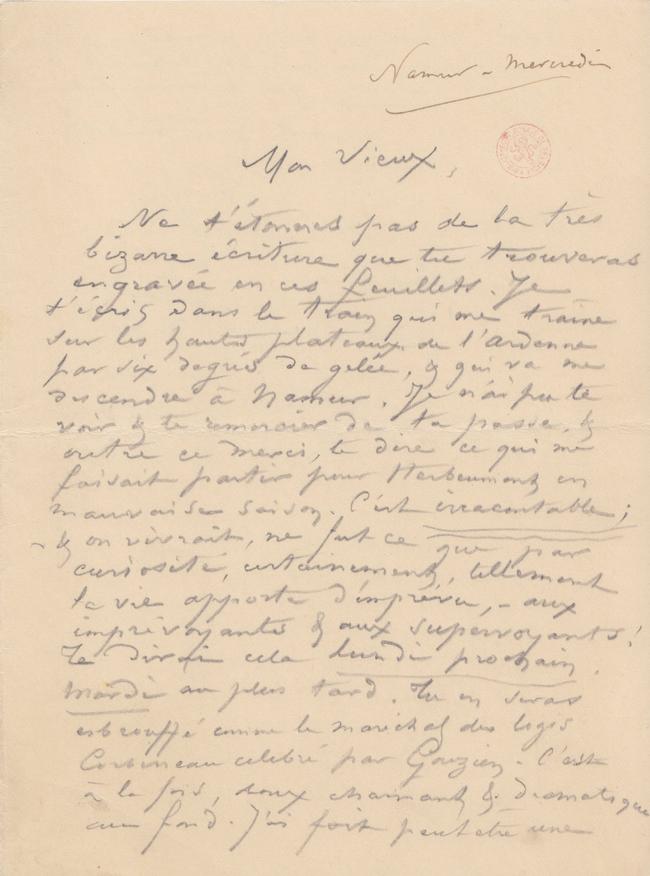 Namur - Mercredi
Mon Vieux,
Ne t'étonnes pas de la très
bizarre écriture que tu trouveras
engravée en ces feuillets. Je
t'écris dans le train qui me traine
sur les hauts plateaux de l'Ardenne
par six degrés de gelée, & qui va me
descendre à Namur. Je n'ai pu te
voir & te remercier de ta passe, &
outre ce merci, te dire ce qui me
faisait partir pour Herbeumont en
mauvaise saison. C'est irracontable ;
- & on vivrait, ne fut ce que par
curiosité, certainement, tellement
la vie apporte d'imprévu, - aux
imprévoyants & aux supervoyants !
Te dirai cela lundi prochain,
mardi au plus tard. Tu en seras
esbrouffé comme le maréchal des logis
Corbineau célébré par Gouzien - C'est
à la fois, doux charmant & dramatique
au fond. J'ai fort peut etre une